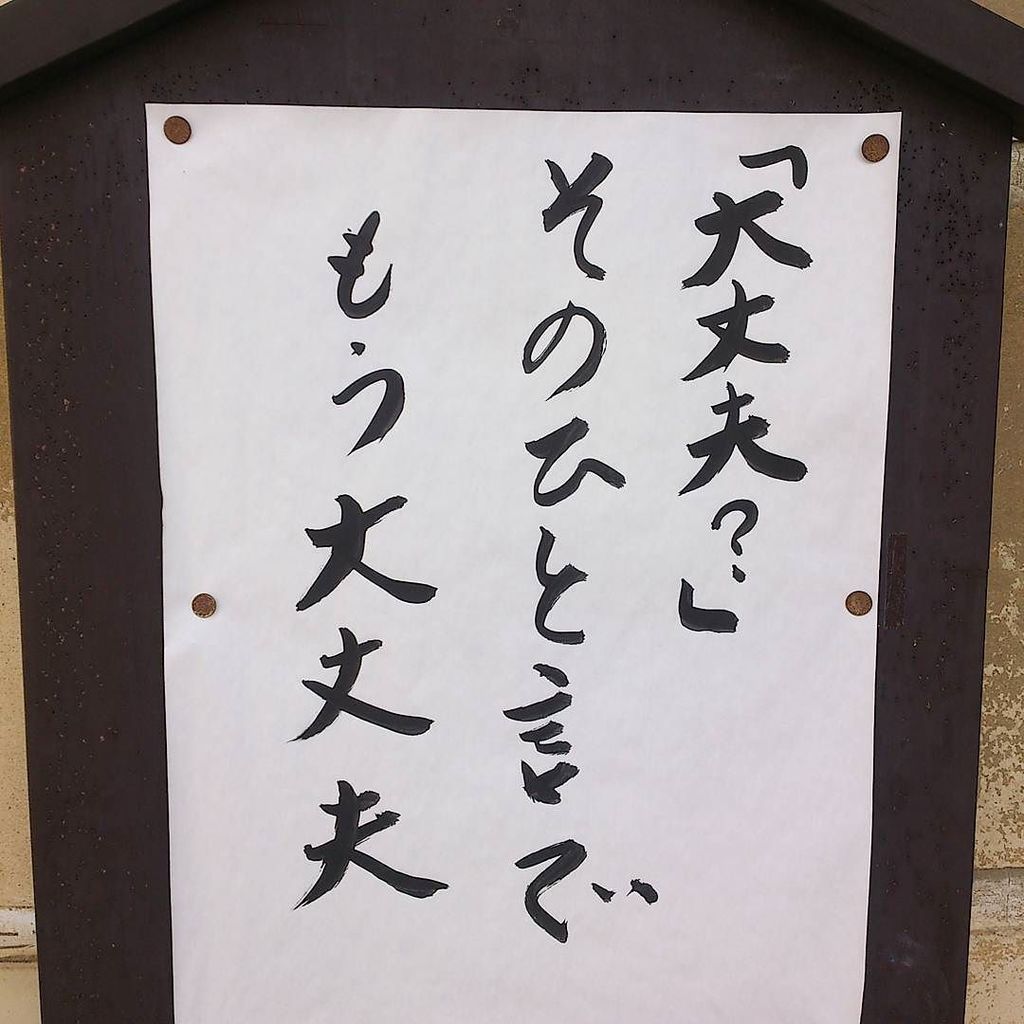 「大丈夫?」
そのひと言で
もう大丈夫